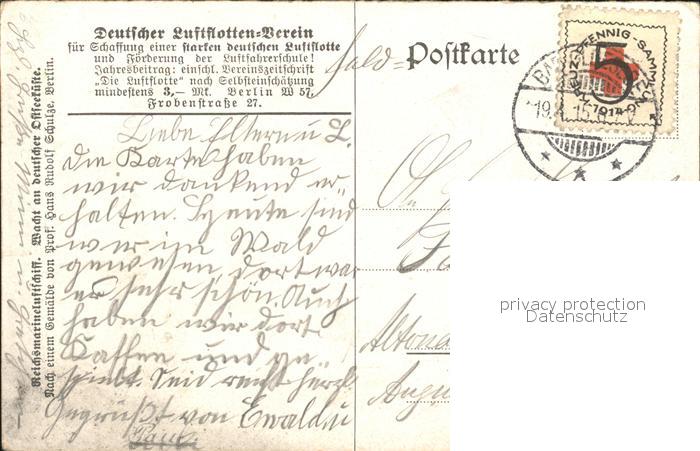 Deutscher Luftflotten=Verein
für Schaffung einer starken deutschen Luftflotte
und Förderung der Luftfahrerschule!
Jahresbeitrag: einschl. Vereinszeitschrift
„Die Luftflotte" nach Selbsteinschätzung
mindestens 3,— Mk. Berlin W 57,
Frobenstraße 27.
Feld=Postkarte
5
1914
Liebe Eltern u L.
Die Karte haben
wir dankend er„
halten. Heute sind
wir im Wald
gewesen, dort war
es sehr schön. Auch
haben wir dort
Kaffee und ge
spielt. Seid recht herzl.
Gegrüßt von Ewald u
Reichsmarineluftschiff. Wacht an deutscher Ostseeküste.
Nach einem Gemälde von Prof. Hans Rudolf Schulze, Berlin.
Altona
privacy protection
Datenschutz